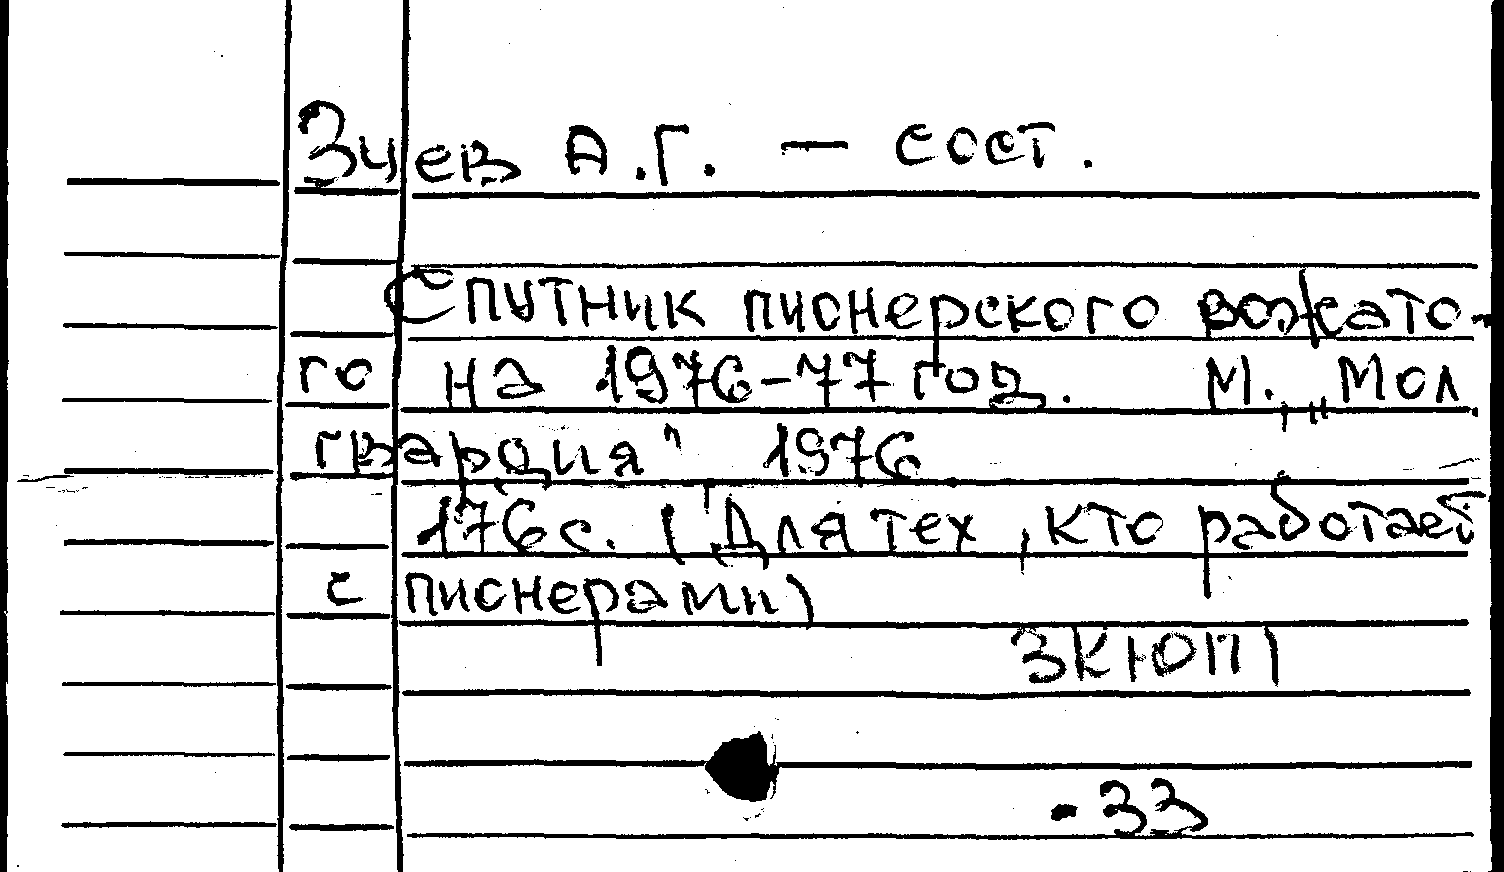 Зуев А.Г. — сост.
Спутник пионерского вожато-
го на 1976-77 год. М., „Мол.
гвардия" 1976.
176 с. (Для тех, кто работает
с пионерами)
3КЮП1
-33